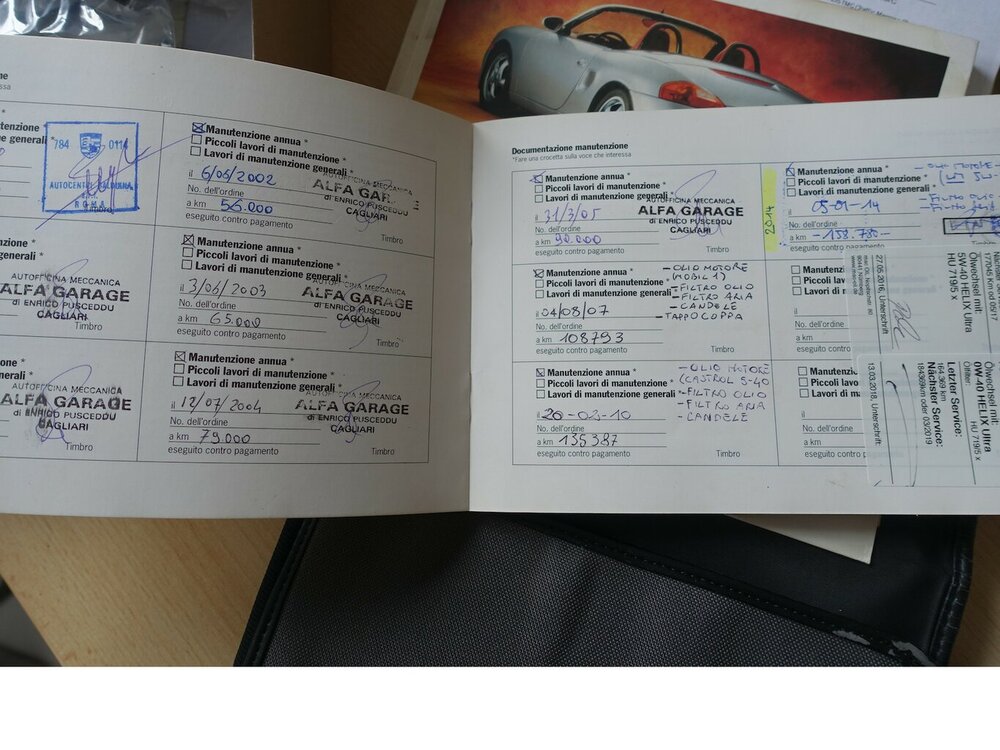 ne
ssa
tenzione *
enzione *
generali *
784 0114
AUTOCENTRI BALDUINA
ROMA
Timbro
Manutenzione annua *
Piccoli lavori di manutenzione *
Lavori di manutenzione generali *
il 6/06/2002
No. dell'ordine
a km 56.000
eseguito contro pagamento
AUTOFFICINA MECCANICA
ALFA GAR
di ENRICO PUSCEDDU
CAGLIARI
Timbro
nzione *
generali *
AUTOFFICINA MECCANICA
ALFA GARAGE
di ENRICO PUSCEDDU
CAGLIARI
Timbro
Manutenzione annua *
Piccoli lavori di manutenzione *
Lavori di manutenzione generali *
il 3/06/2003
No. dell'ordine
a km 65.000
eseguito contro pagamento
AUTOFFICINA MECCANICA
ALFA GARAGE
di ENRICO PUSCEDDU
CAGLIARI
Timbro
enzione *
generali *
AUTOFFICINA MECCANICA
ALFA GARAGE
di ENRICO PUSCEDDU
CAGLIARI
Timbro
Manutenzione annua *
Piccoli lavori di manutenzione *
Lavori di manutenzione generali *
il 12/07/2004
No. dell'ordine
a km 79.000
eseguito contro pagamento
AUTOFFICINA MECCANICA
ALFA GARAGE
di ENRICO PUSCEDDU
CAGLIARI
Timbro
Documentazione manutenzione
*Fare una crocetta sulla voce che interessa
Manutenzione annua *
Piccoli lavori di manutenzione *
Lavori di manutenzione generali *
il 31/3/05
No. dell'ordine
a km 90.000
eseguito contro pagamento
AUTOFFICINA MECCANICA
ALFA GARAGE
di ENRICO PUSCEDDU
CAGLIARI
Manutenzione annua *
Piccoli lavori di manutenzione *
Lavori di manutenzione generali *
il 04/08/07
No. dell'ordine
a km 108793
eseguito contro pagamento
Timbro
- OLIO MOTORE
(MOBIL 1)
- FILTRO OLIO
- FILTRO ARIA
- CANDELE
- TAPPO COPPA
Manutenzione annua *
Piccoli lavori di manutenzione *
Lavori di manutenzione generali *
il 26-02-10
No. dell'ordine
a km 135387
eseguito contro pagamento
Timbro
- OLIO MOTORE
(CASTROL 5-40
- FILTRO OLIO
- FILTRO ARIA
- CANDELE
2014
Manutenzione annua *
Piccoli lavori di manutenzione *
Lavori di manutenzione generali *
il 05-01-14
No. dell'ordine
a km -158.780-
eseguito contro pagamento
Manutenz
Piccoli lavo
Lavori di m
il
No. dell'ordine
a km
eseguito contro p
27.05.2016, Unterschrift
Ölwechsel mit:
5W-40 HELIX Ultra
HU 719/5 x
177045 Km od 05/17
Manutenz
Piccoli lavo
Lavori di m
il
No. dell'ordine
a km
eseguito contro p
Ölwechsel mit:
0W-40 HELIX Ultra
Ölfilter: HU 719/5 x
Letzter Service:
164.369 km
Nächster Service:
184369km oder 03/2019
13.03.2018, Unterschrift: